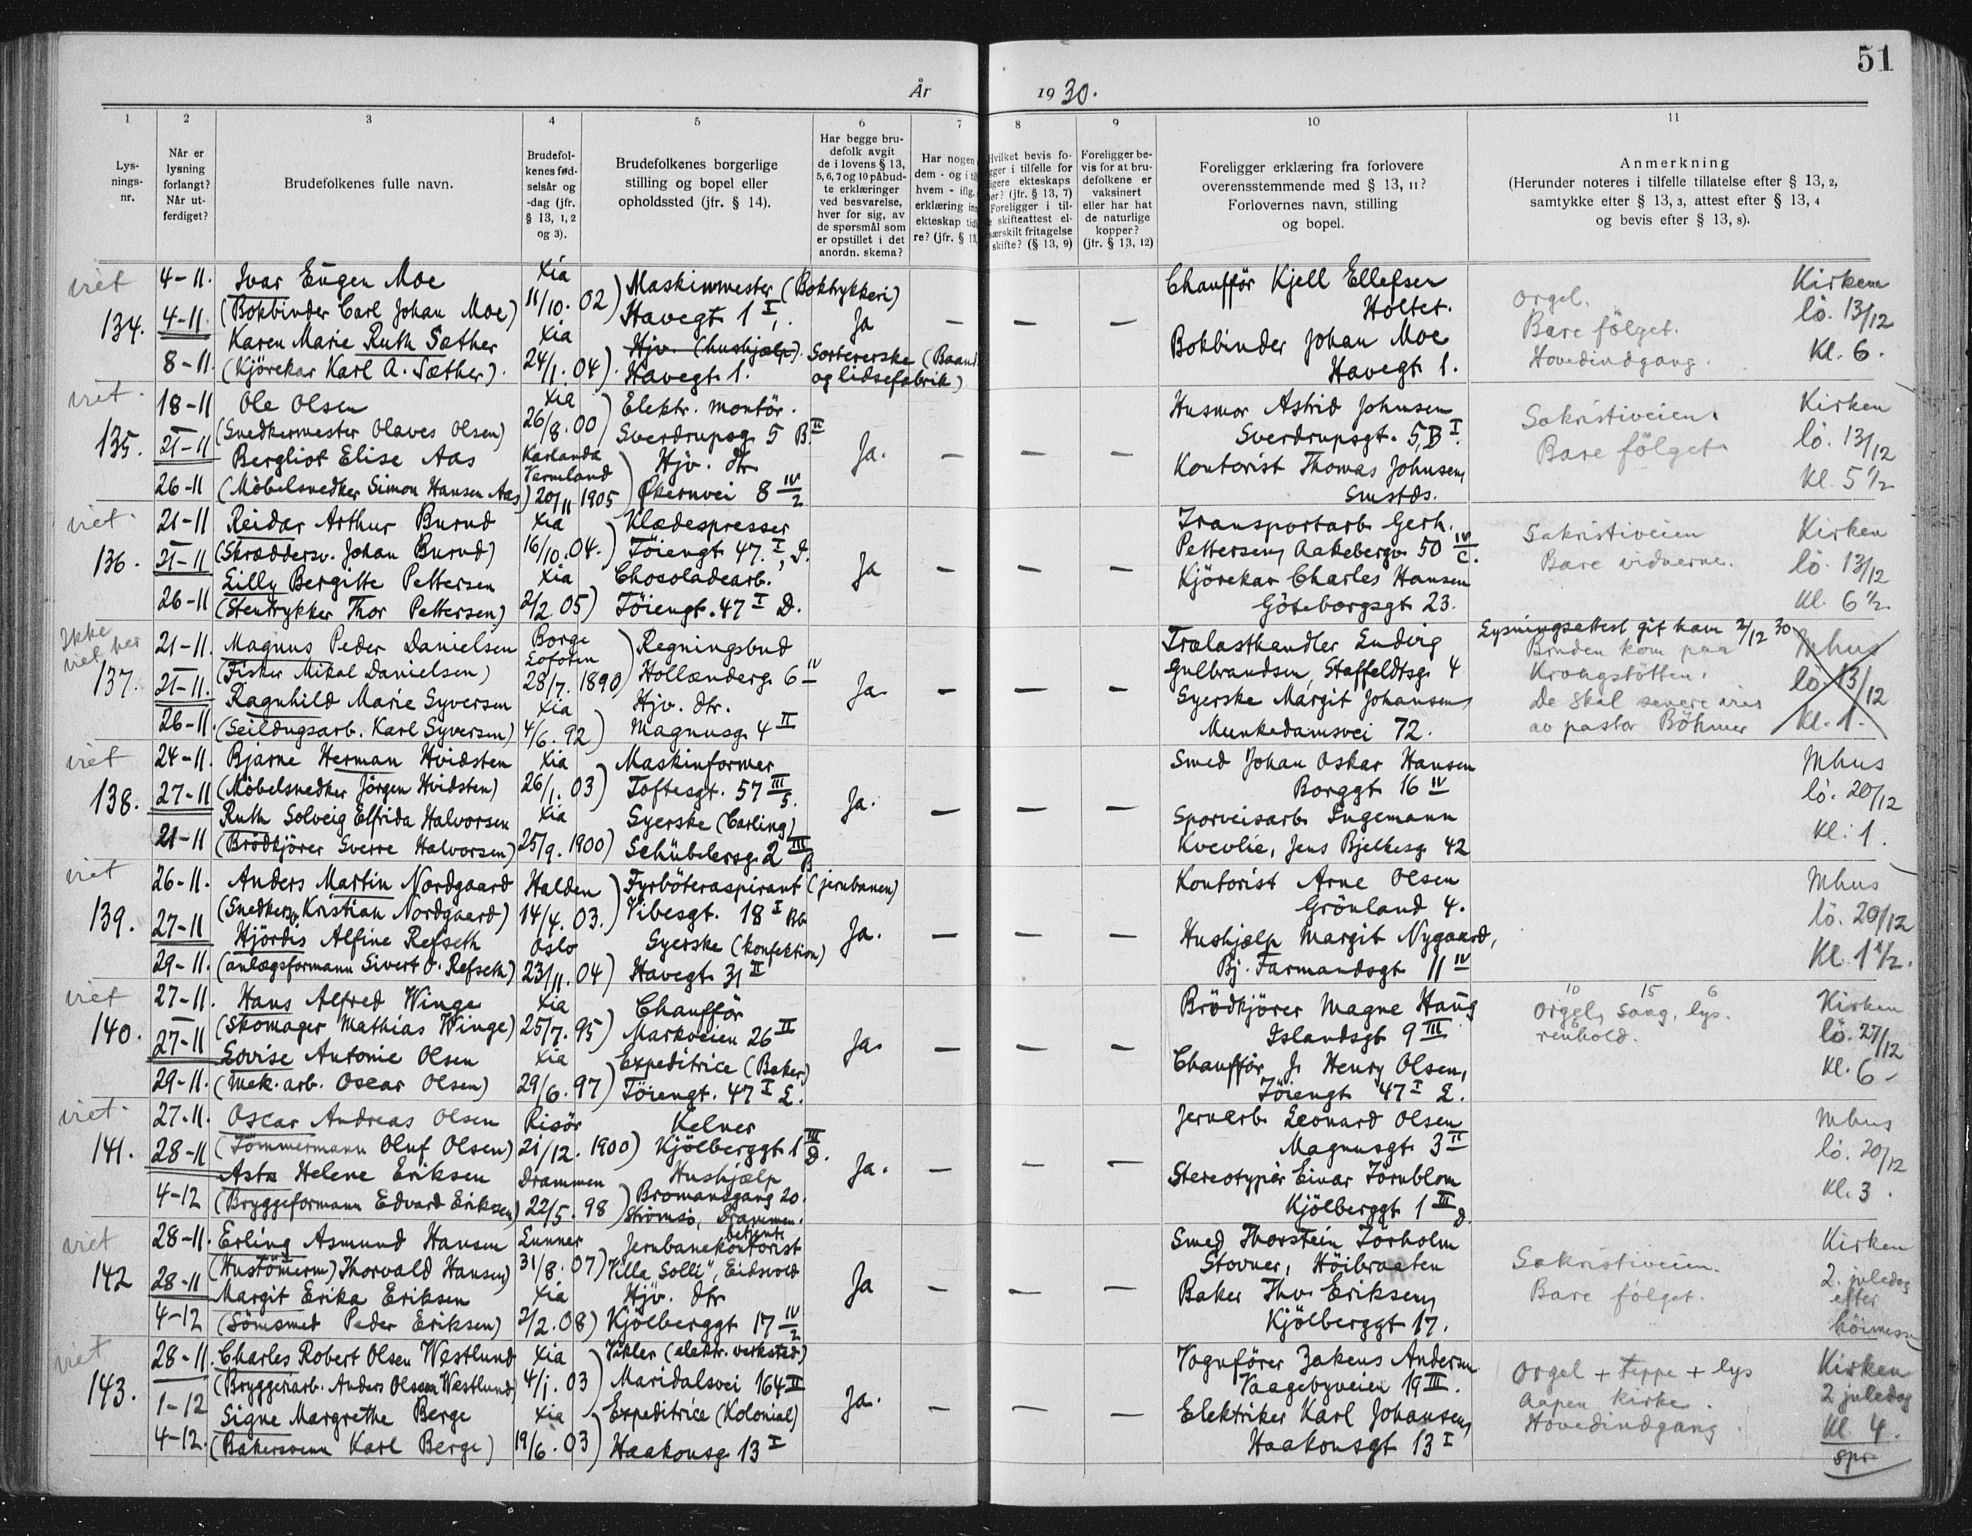 51
År 1930.
1 2 3 4 5 6 7 8 9 10 11
Lysnings-nr.
Når er lysning forlangt? Når utferdiget?
Brudefolkenes fulle navn.
Brudefolkenes fødselsår og -dag (jfr. § 13, 1, 2 og 3).
Brudefolkenes borgerlige stilling og bopel eller opholdssted (jfr. § 14).
Har begge brudefolk avgit de i lovens § 13, 5, 6, 7 og 10 påbudte erklæringer ved besvarelse, hver for sig, av de spørsmål som er opstillet i det anordn. skema?
Har nogen dem - og i hvem - iflg. erklæring ekteskap re? (jfr. § 13,
Hvilket bevis fo- i tilfelle for ekteskaps (jfr. § 13, 7) Foreligger i til- skifteattest el- særskilt fritagelse skifte? (§ 13, 9)
Foreligger bevis for at brudefolkene er vaksinert eller har hat de naturlige kopper? (jfr. § 13, 12)
Foreligger erklæring fra forlovere overensstemmende med § 13, 11? Forlovernes navn, stilling og bopel.
Anmerkning
(Herunder noteres i tilfelle tillatelse efter § 13, 2, samtykke efter § 13, 3, attest efter § 13, 4 og bevis efter § 13, 8).
viet
134.
4-11.
4-11.
8-11.
Ivar Eugen Moe
(Bokbinder Carl Johan Moe)
Karen Marie Ruth Sæther
(Kjörekar Karl A. Sæther).
Xia
11/10. 02)
Xia
24/1. 04)
Maskinmester (Boktrykkeri)
Havegt 1 I.
Hjv. (hushjælp). Sortererske (Baand
Havegt. 1. og lidsefabrik)
Ja
— — —
Chaufför Kjell Ellefsen
Holtet.
Bokbinder Johan Moe
Havegt 1.
Orgel.
Bare fölget.
Hovedindgang.
Kirken
lö. 13/12
Kl. 6.
viet.
135.
18-11
21-11
26-11
Ole Olsen
(Snedkermester Olaves Olsen)
Bergliot Elise Aas
(Möbelsnedker Simon Hansen Aas)
Xia
26/8. 00)
Karlanda
Vermland
20/11 1905
Elektr. montör.
Sverdrupsg. 5 B. II
Hjv. dtr
Økernvei 8 IV/2
Ja.
— — —
Husmor Astrid Johnsen
Sverdrupsgt. 5, B I.
Kontorist Thomas Johnsen,
Smstds.
Sakristiveien.
Bare fölget.
Kirken
lö. 13/12
Kl. 5 1/2
viet.
136.
21-11
21-11
26-11
Reidar Arthur Burud
(Skræddersv. Johan Burud)
Lilly Bergitte Pettersen
(Stentrykker Thor Pettersen)
Xia
16/10. 04.)
Xia
2/2 05)
Klædespresser
Töiengt. 47. I, D.
Chocoladearb.
Töiengt. 47 I D.
Ja
— — —
Transportarb. Gerh.
Pettersen, Aakebergv. 50 IV/C.
Kjörekar Charles Hansen
Göteborgsgt. 23.
Sakristiveien
Bare vidnerne.
Kirken
lö. 13/12
Kl. 6 1/2.
Ikke
viet her
137.
21-11.
21-11.
26-11.
Magnus Peder Danielsen
(Fisker Mikal Danielsen)
Ragnhild Marie Syversen
(Seildugsarb. Karl Syversen)
Borge
Lofoten
28/7. 1890)
Xia
4/6. 92)
Regningsbud
Hollænderg. 6 IV
Hjv. dtr.
Magnusg. 4 II
Ja.
— — —
Trælasthandler Ludvig
Gulbrandsen, Staffeldtsg. 4
Syerske Margit Johansen,
Munkedamsvei 72.
Lysningsattest git ham 2/12 30
Bruden kom paa
Krohgstötten.
De skal senere vies
av pastor Böhmer
Mhus
lö. 13/12
Kl. 1.
viet
138.
24-11.
27-11
21-11
Bjarne Herman Hvidsten
(Möbelsnedker Jörgen Hvidsten)
Ruth Solveig Elfrida Halvorsen
(Brödkjörer Sverre Halvorsen)
Xia
26/1. 03)
Xia
25/9. 1900)
Maskinformer
Toftesgt. 57 III/5.
Syerske (Carling)
Schüblersg. 2 III/B
Ja.
— — —
Smed Johan Oskar Hansen
Borggt 16 IV
Sporveisarb. Ingemann
Kvevlie, Jens Bjelkesg. 42
Mhus
lö. 20/12
Kl. 1.
viet
139.
26-11.
27-11
29-11.
Anders Martin Nordgaard
(Snedker Kristian Nordgaard)
Hjördis Alfine Refseth
(anlægsformann Sivert O. Refseth)
Halden
14/4. 03.)
Oslo
23/11. 04)
Fyrböteraspirant (jernbanen)
Vibesgt. 18 I Bb
Syerske (konfektion)
Havegt. 31 II
Ja.
— — —
Kontorist Arne Olsen
Grönland 4.
Hushjælp Margit Nygaard,
Bj. Farmandsgt 11 IV
Mhus
lö. 20/12
Kl. 1 1/2.
viet
140.
27-11.
27-11
29-11.
Hans Alfred Winge
(Skomager Mathias Winge)
Lovise Antonie Olsen
(Mek. arb. Oscar Olsen)
Xia
25/7. 95)
Xia
29/6. 97)
Chaufför
Markveien 26 II
Expeditrice (Baker)
Töiengt. 47 I E.
Ja.
— — —
Brödkjörer Magne Haug
Islandsgt 9 III
Chaufför J. Henry Olsen,
Töiengt 47 I E.
10 15 6
Orgel, Sang, lys.
renhold.
Kirken
lö. 27/12
Kl. 6-
viet.
141.
27-11.
28-11
4-12
Oscar Andreas Olsen
(Tömmermann Oluf Olsen)
Asta Helene Eriksen
(Bryggeformann Edvard Eriksen)
Risör
21/12. 1900)
Drammen
22/5. 98)
Kelner
Kjölberggt. 1 III/D.
Hushjælp
Bromansgang 20.
Strömsö, Drammen.
Ja.
— — —
Jernarb. Leonard Olsen
Magnusgt. 3 II
Stereotypör Einar Törnblom
Kjölberggt 1 III D.
Mhus
lö. 20/12
Kl. 3.
viet
142
28-11.
28-11
4-12
Erling Asmund Hansen
(Hustömerm) Thorvald Hansen)
Margit Erika Eriksen
(Sömsmed Peder Eriksen)
Lunner
31/8. 07)
Xia
2/2. 08)
Jernbanekontorist
betjent
"Villa Solli", Eidsvold
Hjv. dtr
Kjölberggt 17 IV/2
Ja
— — —
Smed Thorstein Torholm
Stovner, Höibraaten
Baker Thv. Eriksen,
Kjölberggt 17.
Sakristiveien.
Bare fölget.
Kirken
2. juledag
efter
höimesse
viet
143.
28-11.
1-12
4-12.
Charles Robert Olsen Westlund
(Bryggeriarb. Anders Olsen Westlund)
Signe Margrethe Berge
(Bakersvenn Karl Berge)
Xia
4/1. 03)
Xia
19/6. 03)
Vikler (elektr. verksted)
Maridalsvei 164 II
Expeditrice (Kolonial)
Haakonsg 13 I
Ja.
— — —
Vognfører Zakeus Andersen
Vaagebyveien 19 III.
Elektriker Karl Johansen,
Haakonsgt 13 I
Orgel + teppe + lys
Aapen kirke.
Hovedindgang.
Kirken
2 juledag
Kl. 4.
spr.